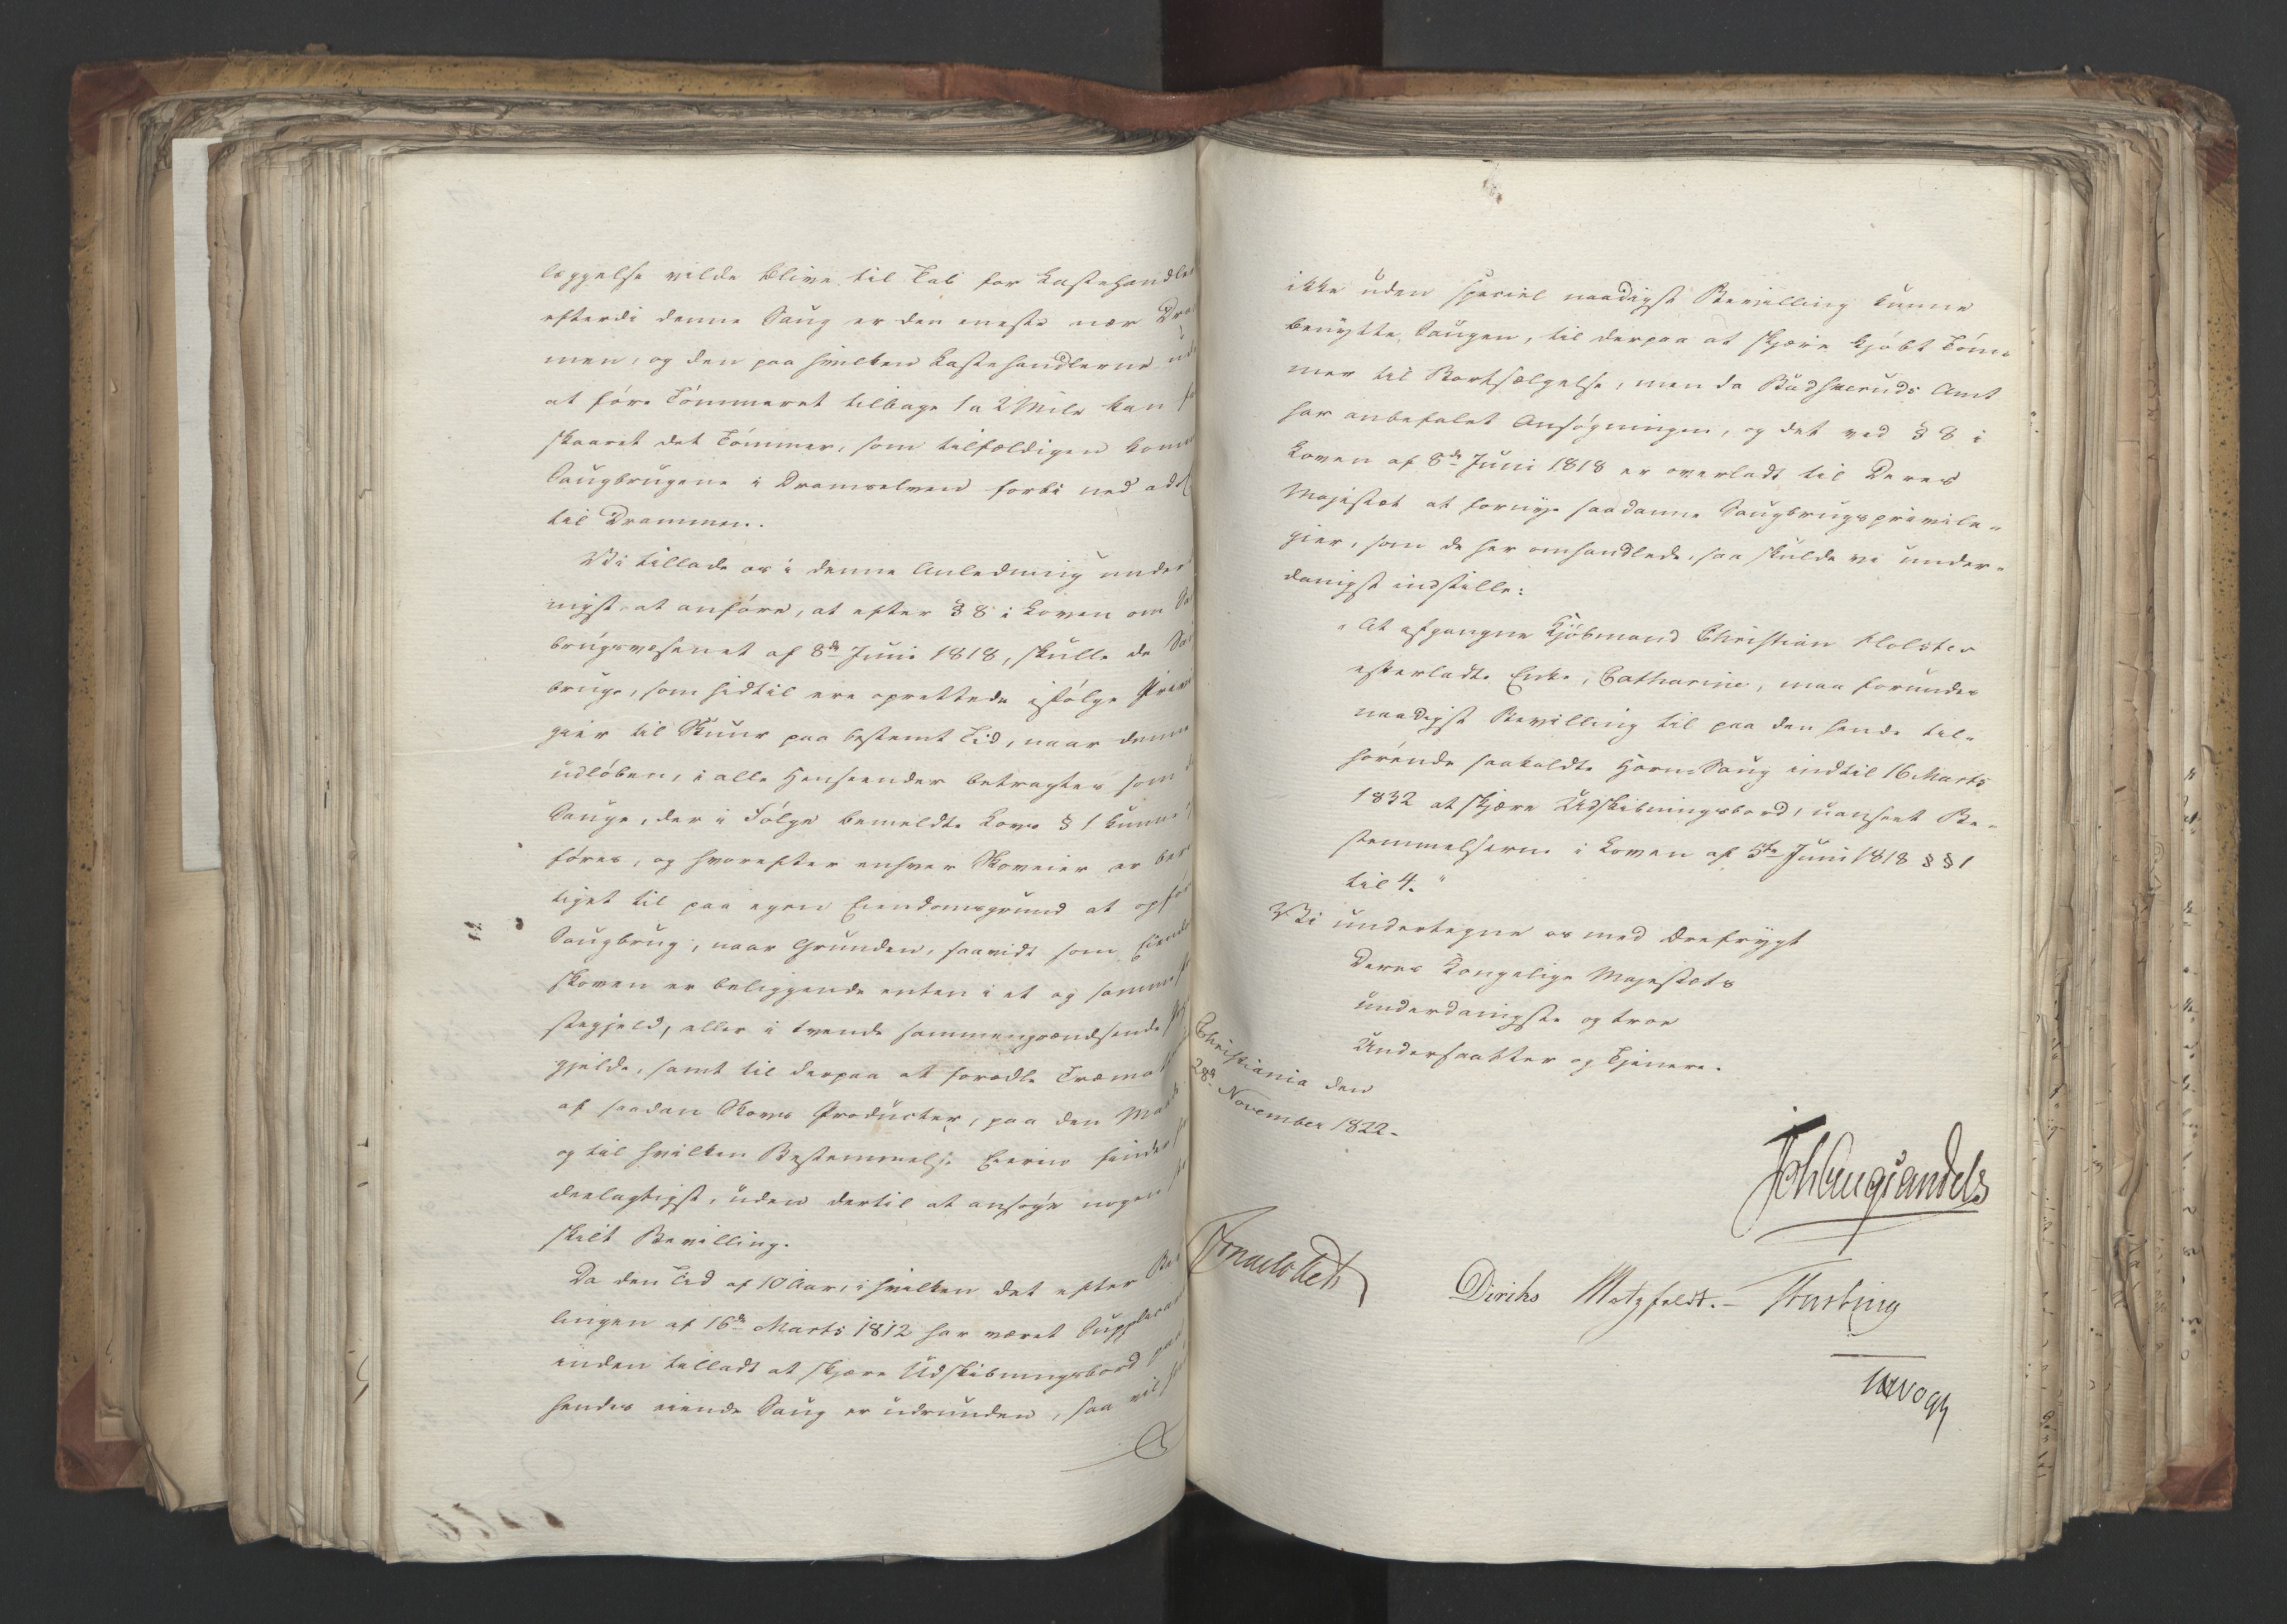 læggelse vilde blive til Tab for Lastehandle
efterdi denne Saug er den eneste nær Dra
men, og den paa hvilken Lastehandlerne ud
at føre Tømmeret tilbage 1 a 2 Mile kan f
skaaret det Tømmer, som tilfældigen kom
Saugbrugene i Dramselven forbi ned
til Drammen.
Vi tillade os i denne Anledning under
nigst at anføre, at efter § 8 i Loven om Sa
brugsvæsenet af 8de Juni 1818, skulle de Sa
bruge, som hidtil ere oprettede ifølge Privi
gier til Skuur paa bestemt Tid, naar denne
udløber, i alle Henseender betragtes som
Sauge, der i Følge bemeldte Lovs § 1 kunne
føres, og hvorefter enhver Skoveier er bere
tiget til paa egen Eiendomsgrund at opfø
Saugbrug, naar Grunden, saavidt som Eiend
skoven er beliggende enten i et og samme
stegjeld, eller i tvende sammengrændsende
gjelde, samt til derpaa at forædle Træma
af saadan Skovs Producter, paa den Maade
og til hvilken Bestemmelse Eieren finder
deelagtigst, uden dertil at ansøge nogen
skilt Bevilling.
Da den Tid af 10 Aar, i hvilken det efter Be
lingen af 16de Marts 1812 har været Supplica
inden tilladt at skjære Udskibningsbord paa
hendes eiende Saug er udrunden, saa vil
ikke uden speciel naadigst Bevilling kunne
benytte Saugen, til derpaa at skjære kjøbt Tøm-
mer til Bortsælgelse, men da Budskeruds Amt
har anbefalet Ansøgningen, og det ved § 8 i
Loven af 8de Juni 1818 er overladt til Deres
Majestæt at fornye saadanne Saugbrugsprivile-
gier, som de her omhandlede, saa skulde vi under-
danigst indstille:
"At afgangne Kjøbmand Christian Holster
efterladte Enke, Catharine, maa forundes
naadigst Bevilling til paa den hende til-
hørende saakaldte Horns Saug indtil 16 Marts
1832 at skjære Udskibningsbord, uanseet Be-
stemmelserne i Loven af 8de Juni 1818 §§ 1
til 4."
Vi undertegne os med Ærefrygt
Deres Kongelige Majestæts
underdanigste og troe
Undersaatter og Tjenere.
Christiania den
28de November 1822.
JohAugSandels
Diriks Motzfeldt. —
Vogt